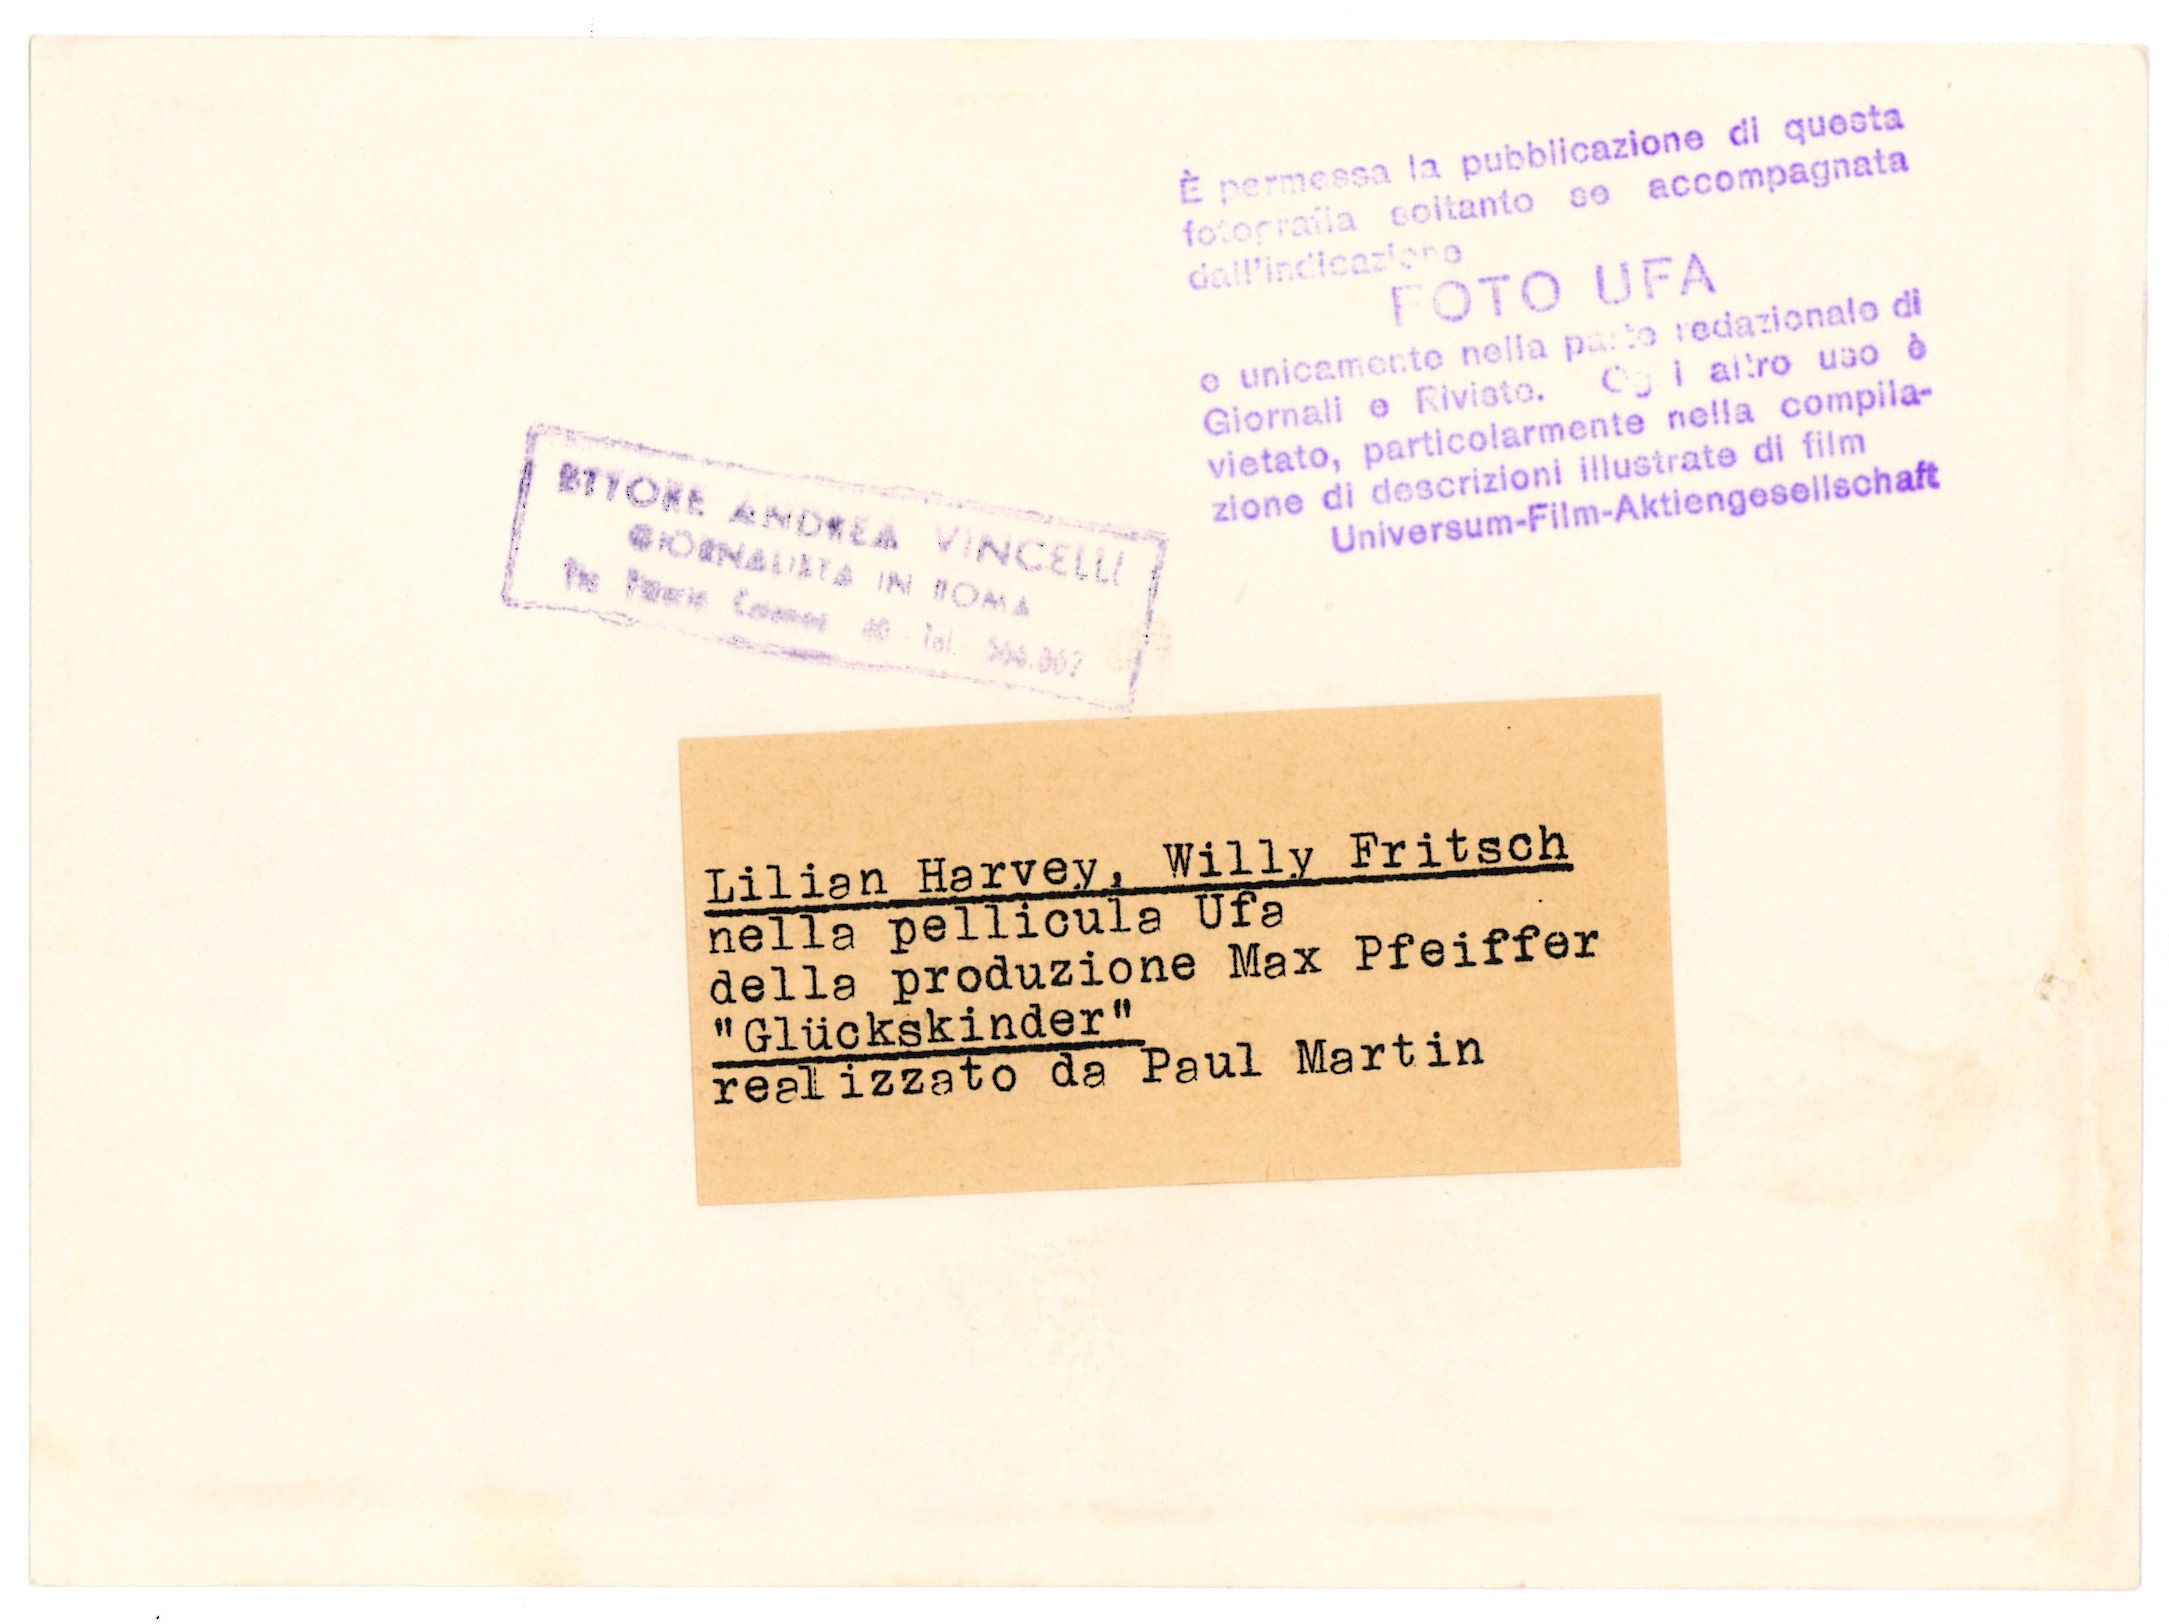 È permessa la pubblicazione di questa
fotografia soltanto se accompagnata
dall'indicazione
FOTO UFA
e unicamente nella parte redazionale di
Giornali e Riviste. Ogni altro uso è
vietato, particolarmente nella compila-
zione di descrizioni illustrate di film
Universum-Film-Aktiengesellschaft
ETTORE ANDREA VINCELLI
GIORNALISTA IN ROMA
Tel.
Lilian Harvey, Willy Fritsch
nella pellicula Ufa
della produzione Max Pfeiffer
"Glückskinder"
realizzato da Paul Martin